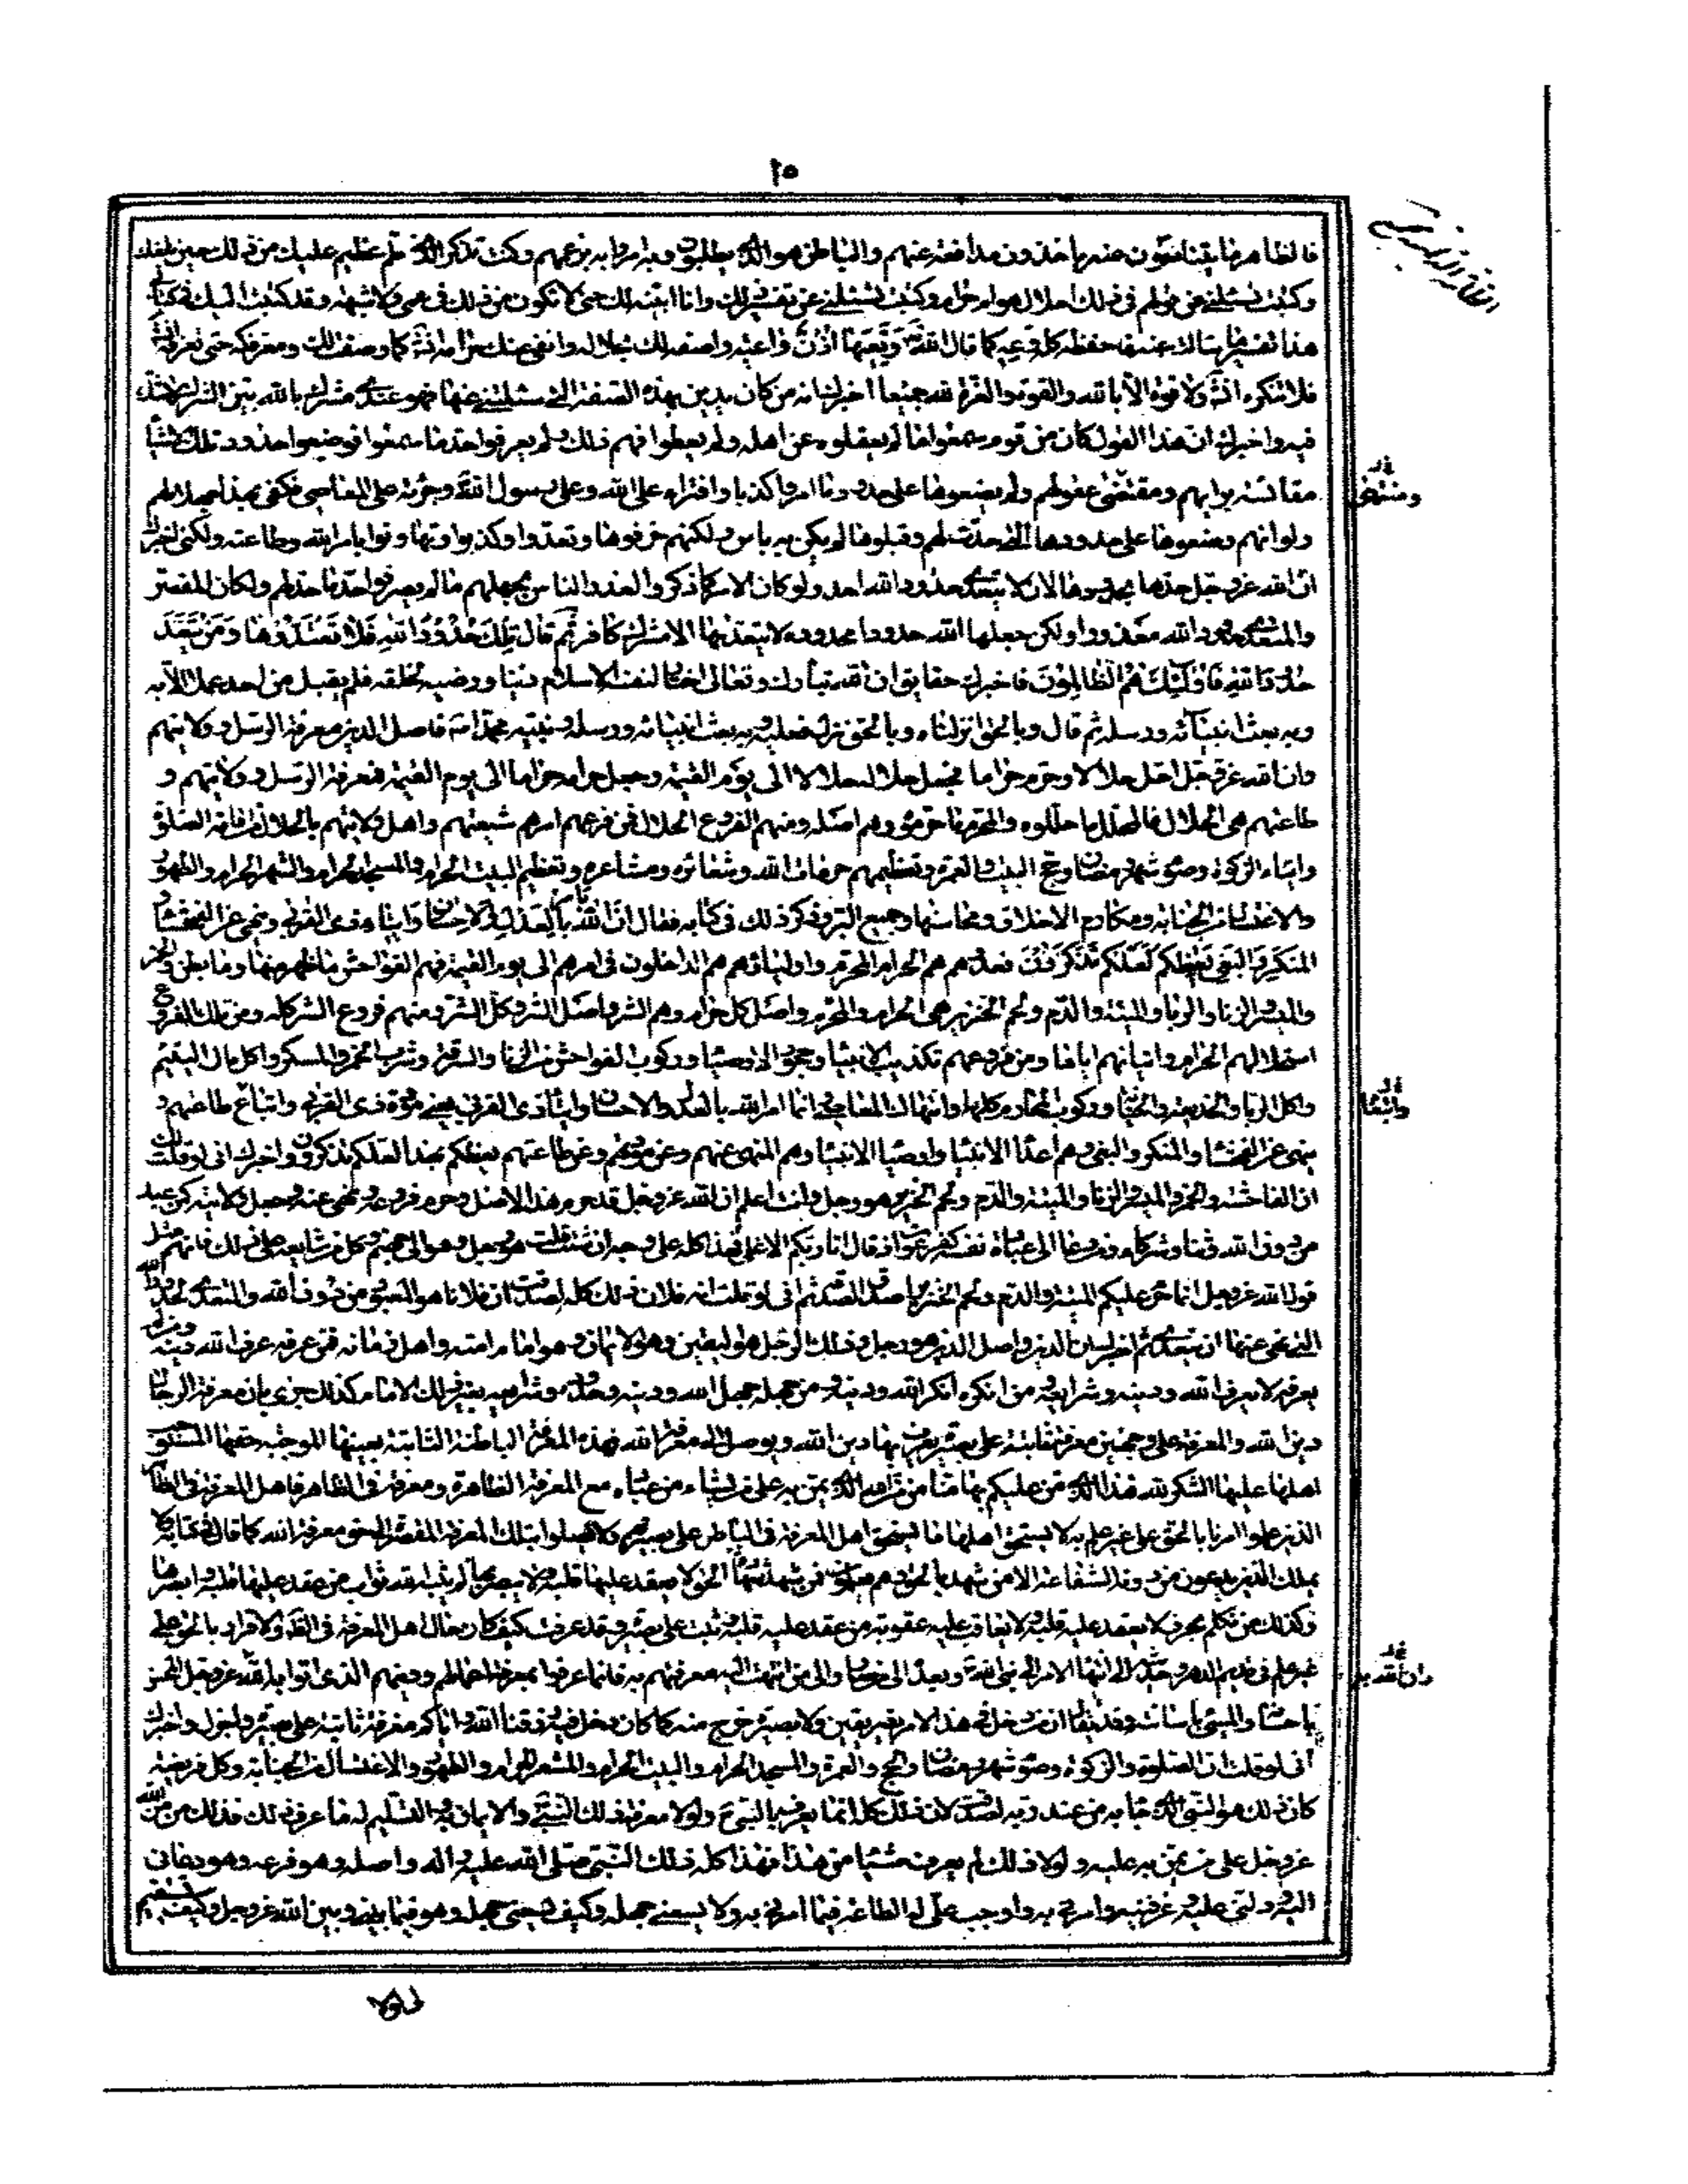 ٢٥
فالظاهر ما يتناهون عنه ياخذون مدافعة عنهم والباطن هو الذى يطلبون وبه امروا بزعمهم وكنت تذكر الذى عظم عليك من ذلك حين بلغك
وكتبت تسئلنى عن قولهم فى ذلك احلال هو ام حرام وكتبت تسئلنى عن تفسير ذلك وانا ابينه لك حتى لا تكون من ذلك فى عمى ولا شبهة وقد كتبت اليك فى كتابى
هذا تفسير ما سالت عنه فاحفظه كله وعه كما قال الله وَتَعِيَها اُذُنٌ واعية واصفه لك بحلاله وانفى عنك حرامه انشاء الله كما وصفت لك ومعرفكه حتى تعرفه انشاء الله
فلا تنكره انشاء الله ولا قوة الا بالله والقوة والعزة لله جميعا اخبرك انه من كان يدين بهذه الصفة التى سئلتنى عنها فهو عندى مشرك بالله بين الشرك لا شك
فيه واخبرك ان هذا القول كان من قوم سمعوا ما لم يعقلوه عن اهله ولم يعطوا فهم ذلك ولم يعرفوا حد ما سمعوا فوضعوا حدود تلك الاشياء
مقايسة برايهم ومنتهى عقولهم ولم يضعوها على حدود ما امروا كذبا وافتراء على الله وعلى رسول الله وجرئة على المعاصى فكفى بهذا لهم جهلا
ولو انهم وضعوها على حدودها التى حدت لهم وقبلوها لم يكن به باس ولكنهم حرفوها وتعدوا وكذبوا وتهاونوا بامر الله وطاعته ولكنى اخبرك
ان الله عز وجل حدها بحدودها لان لا يتعدى حدود الله احد ولو كان الامر كما ذكروا لعذر الناس بجهلهم ما لم يعرفوا حد ما حد لهم ولكان المقصر
والمتعدى حدود الله معذورا ولكن جعلها الله حدودا محدودة لا يتعداها الا مشرك كافر ثم قال تِلْكَ حُدُودُ اللهِ فَلا تَعْتَدُوها وَمَنْ يَتَعَدَّ
حُدُودَ اللهِ فَاُولئِكَ هُمُ الظّالِمُونَ فاخبرك حقايق ان الله تبارك وتعالى اختار لنفسه الاسلام دينا ورضيه لخلقه فلم يقبل من احد عملا الا به
وبه بعث انبيائه ورسله ثم قال وبالحق انزلناه وبالحق نزل فعليه وبه بعث انبيائه ورسله ونبيه محمدا ص فاصل الدين معرفة الرسل وولايتهم
وان الله عز وجل احل حلالا وحرم حراما فجعل حلاله حلالا الى يوم القيمة وجعل حرامه حراما الى يوم القيمة فمعرفة الرسل وولايتهم و
طاعتهم هى الحلال فالمحلل ما حللوه والمحرم ما حرموه وهم اصله ومنهم الفروع الحلال فمن فروعهم امرهم شيعتهم واهل ولايتهم بالحلال من اقامة الصلوة
وايتاء الزكوة وصوم شهر رمضان وحج البيت والعمرة وتعظيمهم حرمات الله وشعائره ومشاعره وتعظيم البيت الحرام والمسجد الحرام والشهر الحرام والطهور
والاغتسال من الجنابة ومكارم الاخلاق ومحاسنها وجميع البر وذكر ذلك فى كتابه فقال ان الله يأمر بالعدل والاحسان وايتاء ذى القربى وينهى عن الفحشاء
والمنكر والبغى يعظكم لعلكم تذكرون فعدوهم هم الحرام المحرم واوليائهم هم الداخلون فى امرهم الى يوم القيمة فهم الفواحش ما ظهر منها وما بطن والخمر
والميسر والزنا والربا والميتة والدم ولحم الخنزير هى الحرام والمحرم واصل كل حرام وهم الشر واصل الشر وكل الشر ومنهم فروع الشر كله ومن تلك الفروع
استحلالهم الحرام واتيانهم اياها ومن فروعهم تكذيب الانبياء وجحود الاوصياء وركوب الفواحش من الزنا والسرقة وشرب الخمر والمسكر واكل مال اليتيم
واكل الربا والخديعة والخيانة وركوب المحارم كلها وانتهاك المعاصى انما امر الله بالعدل والاحسان وايتاء ذى القربى يعنى مودة ذى القربى واتباع طاعتهم و
ينهى عن الفحشاء والمنكر والبغى وهم اعداء الانبياء واوصياء الانبياء وهم المنهى عنهم وعن مودتهم وعن طاعتهم يعظكم بهذا لعلكم تذكرون واخبرك انى لو قلت لك
ان الفاحشة والخمر والميسر والزنا والميتة والدم ولحم الخنزير هو رجل وانت اعلم ان الله عز وجل قد حرم هذا الاصل وحرم فروعه ونهى عنه وجعل ولايته كمن عبد
من دون الله وثنا وشركاء ومن دعا الى عبادة نفسه كفرعون اذ قال انا ربكم الاعلى فهذا كله على وجه ان شئت قلت هو رجل وهو الى جهنم وكل من شايعه على ذلك فانهم مثل
قول الله عز وجل انما حرم عليكم الميتة والدم ولحم الخنزير لصدقت ثم انى لو قلت انه فلان ذلك كله لصدقت ان فلانا هو المعبود من دون الله والمتعدى لحدود الله
التى نهى عنها ان يتعدى ثم اخبرك ان الدين واصل الدين هو رجل وذلك الرجل هو اليقين وهو الايمان وهو امام امته واهل زمانه فمن عرفه عرف الله ودينه ومن لم
يعرفه لا يعرف الله ودينه وشرايعه من انكره انكر الله ودينه ومن جهله جهل الله ودينه وحدوده وشرايعه بغير ذلك الامام كذلك جرى بان معرفة الرجال
دين الله والمعرفة على وجهين معرفة ثابتة على بصيرة يعرف بها دين الله ويوصل الى معرفة الله فهذه المعرفة الباطنة الثابتة بعينها الموجبة حقها المستوجب
اهلها عليها الشكر لله
الذين علموا امرنا بالحق على غير علم به لا يستحق اهلها ما يستحق اهل المعرفة فى الباطن على بصيرتهم ولا يصلوا بتلك المعرفة المقصرة الى حق معرفة الله كما قال فى كتابه ولا
يملك الذين يدعون من دونه الشفاعة الا من شهد بالحق وهم يعلمون فمن شهد شهادة الحق لا يعقد عليها قلبه ولا يبصر بها لم يثبه الله ثواب من عقد عليها قلبه وابصرها
وكذلك من تكلم بجور لا يعقد عليه قلبه لا يعاقب عليه عقوبة من عقد عليه قلبه وثبت على بصيرة وقد عرفت كيف كان حال اهل المعرفة فى الظاهر والاقرار بالحق على
غير علم فى قديم الدهر وحديثه الى ان انتهى الامر الى نبى الله وبعده الى من صار والى من انتهت اليه معرفتهم به فانما عرفوا بمعرفة اعمالهم ودينهم الذى اتوا به الله عز وجل المحسن
باحسانه والمسئ باسائته وقد يقال ان من دخل فى هذا الامر بغير يقين ولا بصيرة خرج منه كما كان دخل فيه رزقنا الله واياكم معرفة ثابتة على بصيرة واخبرك
انى لو قلت ان الصلوة والزكوة وصوم شهر رمضان والحج والعمرة والمسجد الحرام والبيت الحرام والمشعر الحرام والطهور والاغتسال من الجنابة وكل فريضة
كان ذلك هو النبى الذى جاء به من عند ربه لصدقت لان ذلك كله انما يعرف بالنبى ولولا معرفة ذلك النبى والايمان به والتسليم له ما عرف ذلك فذلك من من الله
عز وجل على من يمن به عليه ولولا ذلك لم يعرف شيئا من هذا فهذا كله ذلك النبى صلى الله عليه واله واصله وهو فرعه وهو دعانى
اليه ودلنى عليه وعرفنيه وامرنى به واوجب على له الطاعة فيما امرنى به ولا يسعنى جهله وكيف يسعنى جهله وهو فيما بينى وبين الله عز وجل وكيف يستقيم
لى لولا